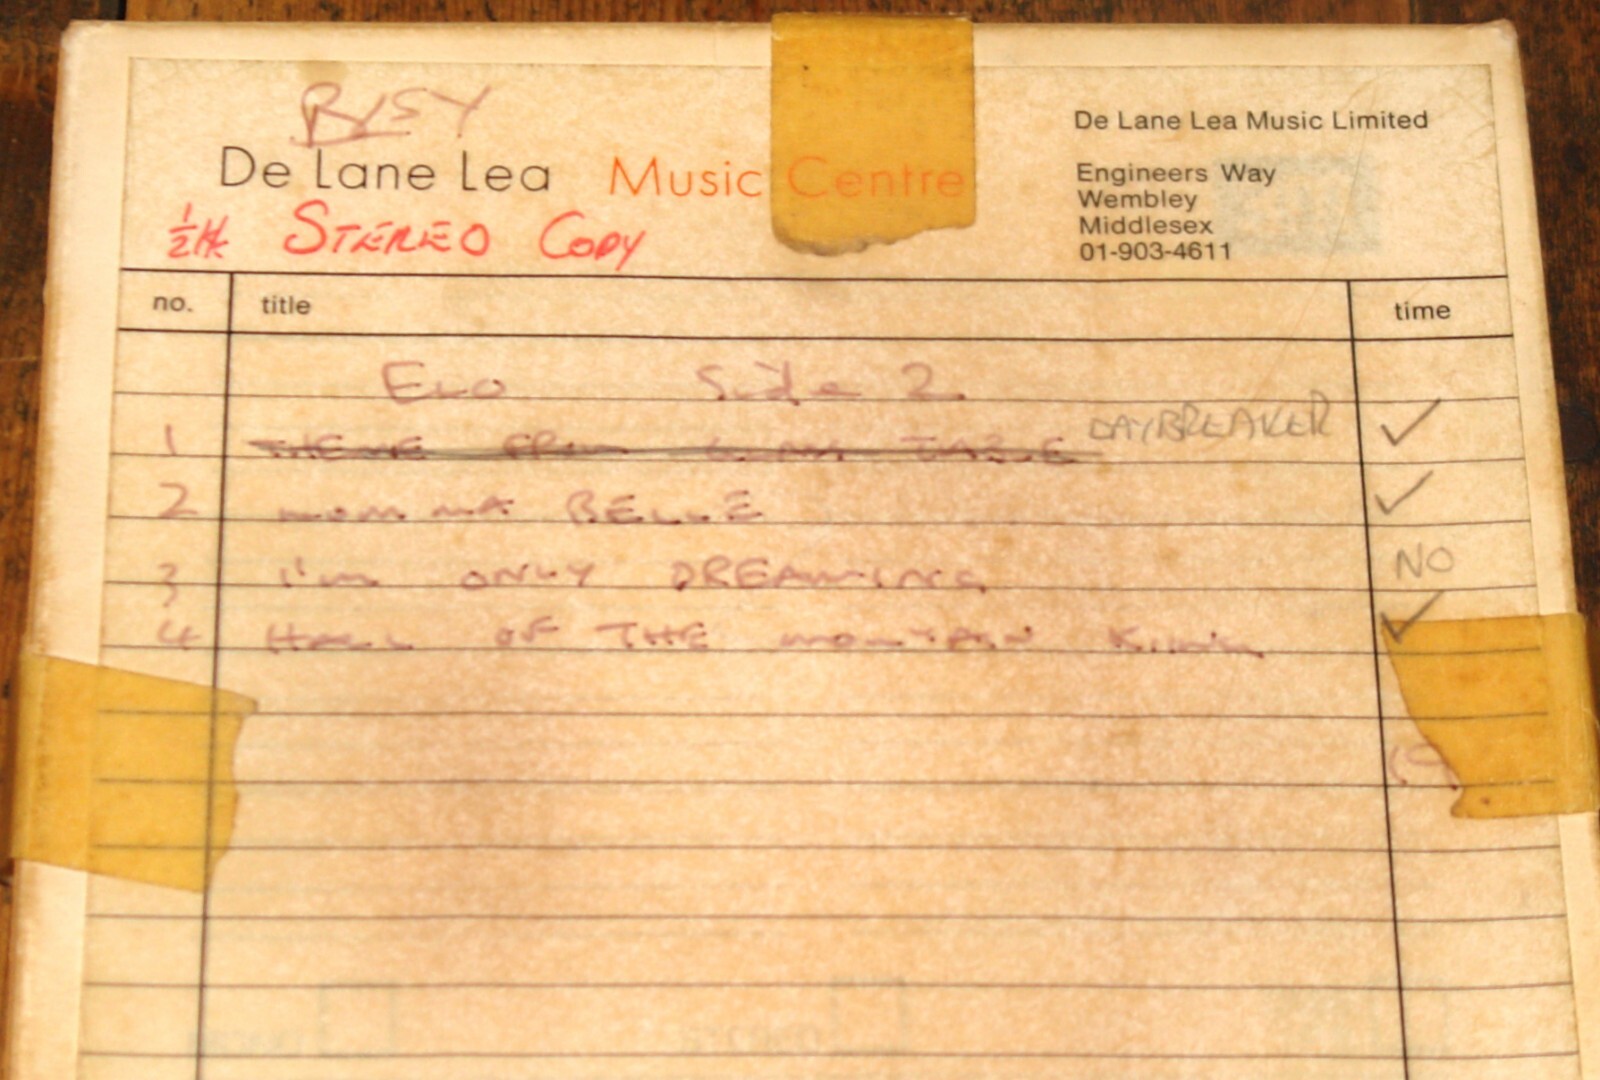 De Lane Lea Music Centre
De Lane Lea Music Limited
Engineers Way
Wembley
Middlesex
01-903-4611
STEREO COPY
no. title time
ELO Side 2
1 THEME FROM DAYBREAKER ✓
2 MOMMA BELLE ✓
3 I'm ONLY DREAMING NO
4 HALL OF THE MOUNTAIN KING ✓